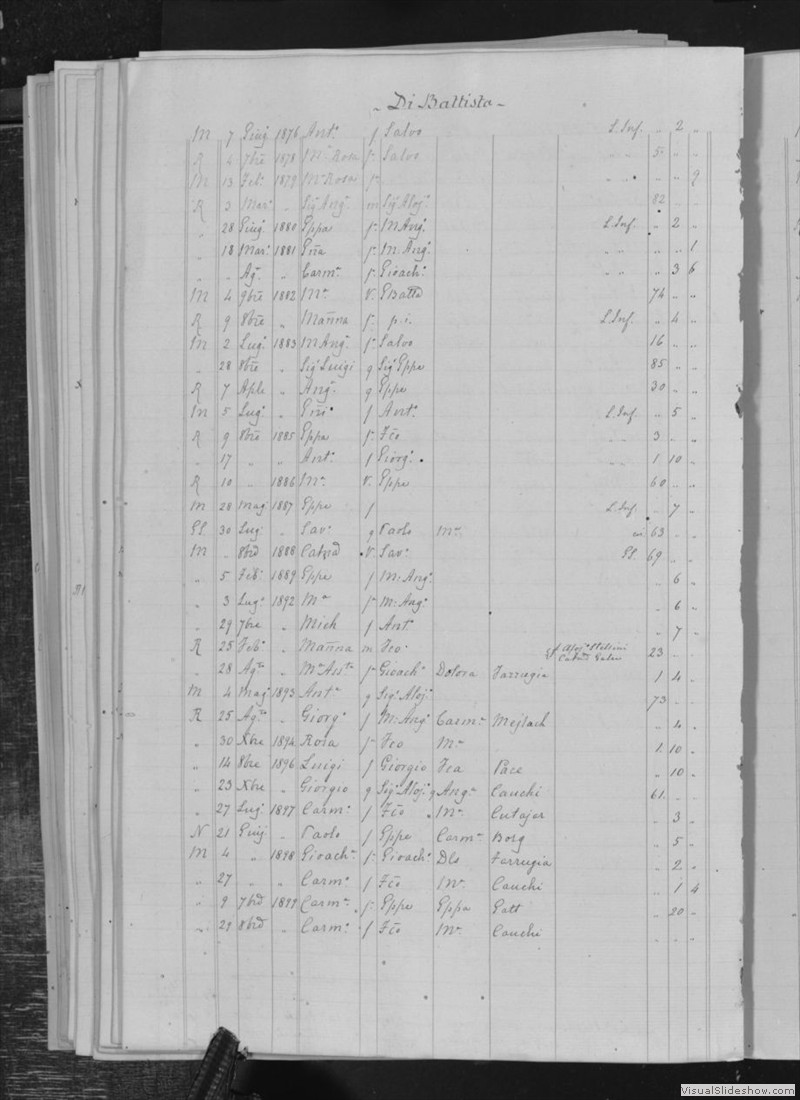 Di Battista
M 7 Giug 1876 Ant.ª f Salvo L. Inf. „ 2 „
R 4 7bre 1878 M.ª Rosa f. Salvo „ „ 5 „ „
M 13 Feb.º 1879 M.ª Rosa f. „ „ „ „ 9
R 3 Mar. „ Sig.ª Ang.ª m Sig. Aloj. 82 „ „
„ 28 Giug. 1880 Eppa f. M. Ang. L. Inf. „ 2 „
„ 18 Mar. 1881 f. M. Ang. „ „ „ „ 1
„ „ Ag. „ Carm. f. Gioach. „ „ „ 3 6
M 4 9bre 1882 M.ª V. GBatta 74 „ „
R 9 8bre „ Marīna f. p. i. L. Inf. „ 4 „
M 2 Lug. 1883 M. Ang. f. Salvo 16 „ „
„ 28 8bre „ Sig. Luigi g Sig. Eppe 85 „ „
R 7 Aple „ Ang. g Eppe 30 „ „
M 5 Lug. „ f Ant. L. Inf. „ 5 „
R 9 8bre 1885 Eppa f. Fco „ „ 3 „ „
„ 17 „ „ Ant. f Giorg. 1 10 „
R 10 „ 1886 M.ª V. Eppe 60 „ „
M 28 Mag 1887 Eppe f L. Inf. „ 7 „
30 Lug. „ Sav. g Paolo M.ª 63 „ „
M „ 8bre 1888 V. Sav. 69 „ „
„ 5 Feb. 1889 Eppe f M. Ang. „ 6 „
„ 3 Lug. 1892 M.ª f. M. Ang. „ 6 „
„ 29 7bre „ Mich f Ant. „ 7 „
R 25 Feb. „ Marīna m Fco. 23 „ „
„ 28 Ag. „ M.ª f. Gioach. Dolora Farrugia 1 4 „
M 4 Mag 1893 Ant.ª g Sig. Aloj. 73 „ „
R 25 Ag. „ Giorg. f M. Ang. Carm. Mejlach „ 4 „
„ 30 Xbre 1894 Rosa f. Fco M.ª 1 10 „
„ 14 8bre 1896 Luigi f Giorgio Fca Pace „ 10 „
„ 23 Xbre „ Giorgio g Sig. Aloj. g Ang. Cauchi 61 „ „
„ 27 Lug. 1897 Carm. f Fco M.ª Cutajar „ 3 „
N 21 Giug. „ Paolo f Eppe Carm. Borg „ 5 „
M 4 „ 1898 Gioach. f. Gioach. Dla Farrugia „ 2 „
„ 27 „ „ Carm. f Fco M.ª Cauchi „ 1 4
„ 9 7bre 1899 Carm. f. Eppe Eppa Gatt „ 20 „
„ 29 8bre „ Carm. f Fco M.ª Cauchi „ „ „
VisualSlideshow.com